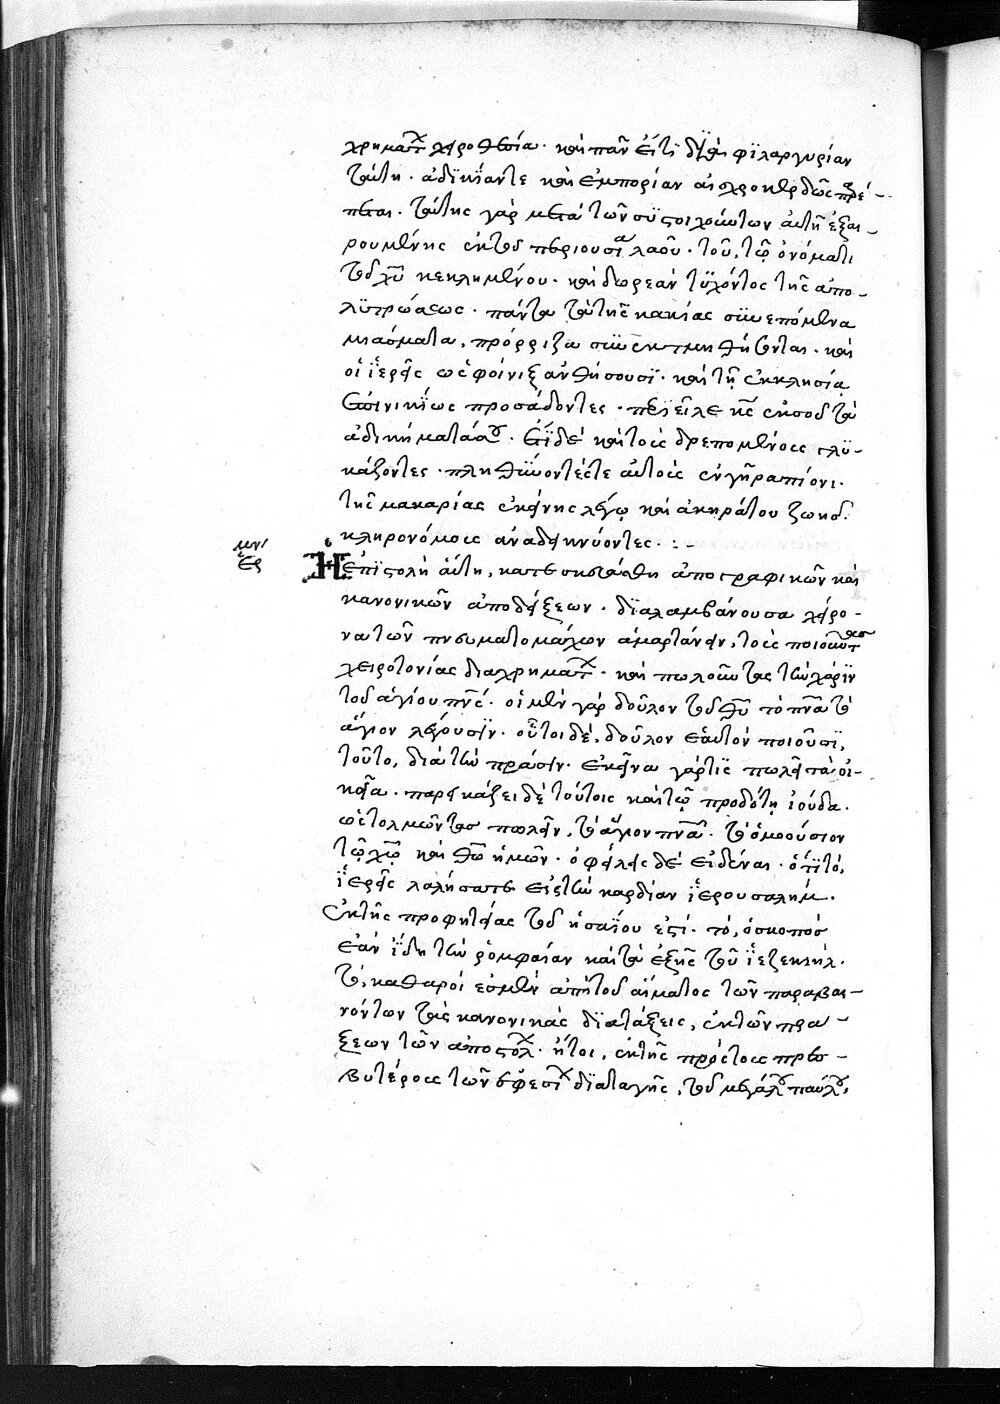 χρηματ χειροθεσία· καὶ πᾶν εἴ τι διὰ φιλαργυρίαν
ταύτη· ἀδικίαν τε καὶ ἐμπορίαν αἰσχροκερδῶς
ταύτης γὰρ μετὰ τῶν συστοιχούντων αὐτῇ ἐξαι-
ρουμένης ἐκ τοῦ περιουσίου λαοῦ· τοῦ, τῷ ὀνόματι
τοῦ χυ κεκλημένου· καὶ δωρεὰν τυχόντος τῆς ἀπο-
λυτρώσεως· πάντα τὰ τῆς κακίας συνεπόμενα
μιάσματα, πρόρριζα συνεκτμηθήσονται· καὶ
οἱ ἱερεῖς ὡς φοίνιξ ἀνθήσουσι· καὶ τῇ ἐκκλησία
προσάδοντες·
ἀδικήματά σου· καὶ τοῖς δρεπομένοις γλυ-
κάζοντες· πληθύνοντές τε αὐτοῖς ἐν γήρα πίονι·
τῆς μακαρίας ἐκείνης λέγω καὶ ἀκηράτου ζωῆς
κληρονόμοις ἀναδεικνύοντες· : -
Ἡ ἐπιστολὴ αὕτη, κατεσκευάσθη ἀπὸ γραφικῶν καὶ
κανονικῶν ἀποδείξεων· διαλαμβάνουσα χείρο-
να τῶν πνευματομάχων ἁμαρτάνειν, τοὺς ποιοῦντας
χειροτονίας διὰ χρηματ· καὶ πωλοῦντας τὴν χάριν
τοῦ ἁγίου πνς· οἱ μὲν γὰρ δοῦλον τοῦ θυ τὸ πνα τὸ
ἅγιον λέγουσιν· οὗτοι δὲ, δοῦλον ἑαυτῶν ποιοῦσι,
τοῦτο, διὰ τὴν πρᾶσιν· ἐκεῖνα γάρ τις πωλεῖ τὰ οἰ-
κεῖα· παρεικάζει δὲ τούτοις καὶ τῷ προδότη ἰούδα·
ὡς τολμῶντας πωλεῖν, τὸ ἅγιον πνα· τὸ ὁμοούσιον
τῷ χω καὶ θω ἡμῶν· ὀφείλεις δὲ εἰδέναι· ὅτι τὸ,
ἱερεῖς λαλήσατε εἰς τὴν καρδίαν ἱερουσαλήμ·
ἐκ τῆς προφητείας τοῦ ἡσαΐου ἐστί· τὸ, ὁ σκοπὸς
ἐὰν ἴδη τὴν ῥομφαίαν καὶ τὰ ἑξῆς τοῦ ἰεζεκιήλ·
τὸ, καθαροί ἐσμεν ἀπὸ τοῦ αἵματος τῶν παραβαι-
νόντων τὰς κανονικὰς διατάξεις, ἐκ τῶν πρά-
ξεων τῶν ἀποστολ· ἤτοι, ἐκ τῆς πρὸς τοὺς πρεσ-
βυτέρους τῶν ἐφεσί διαταγῆς, τοῦ μεγάλου παύλου,